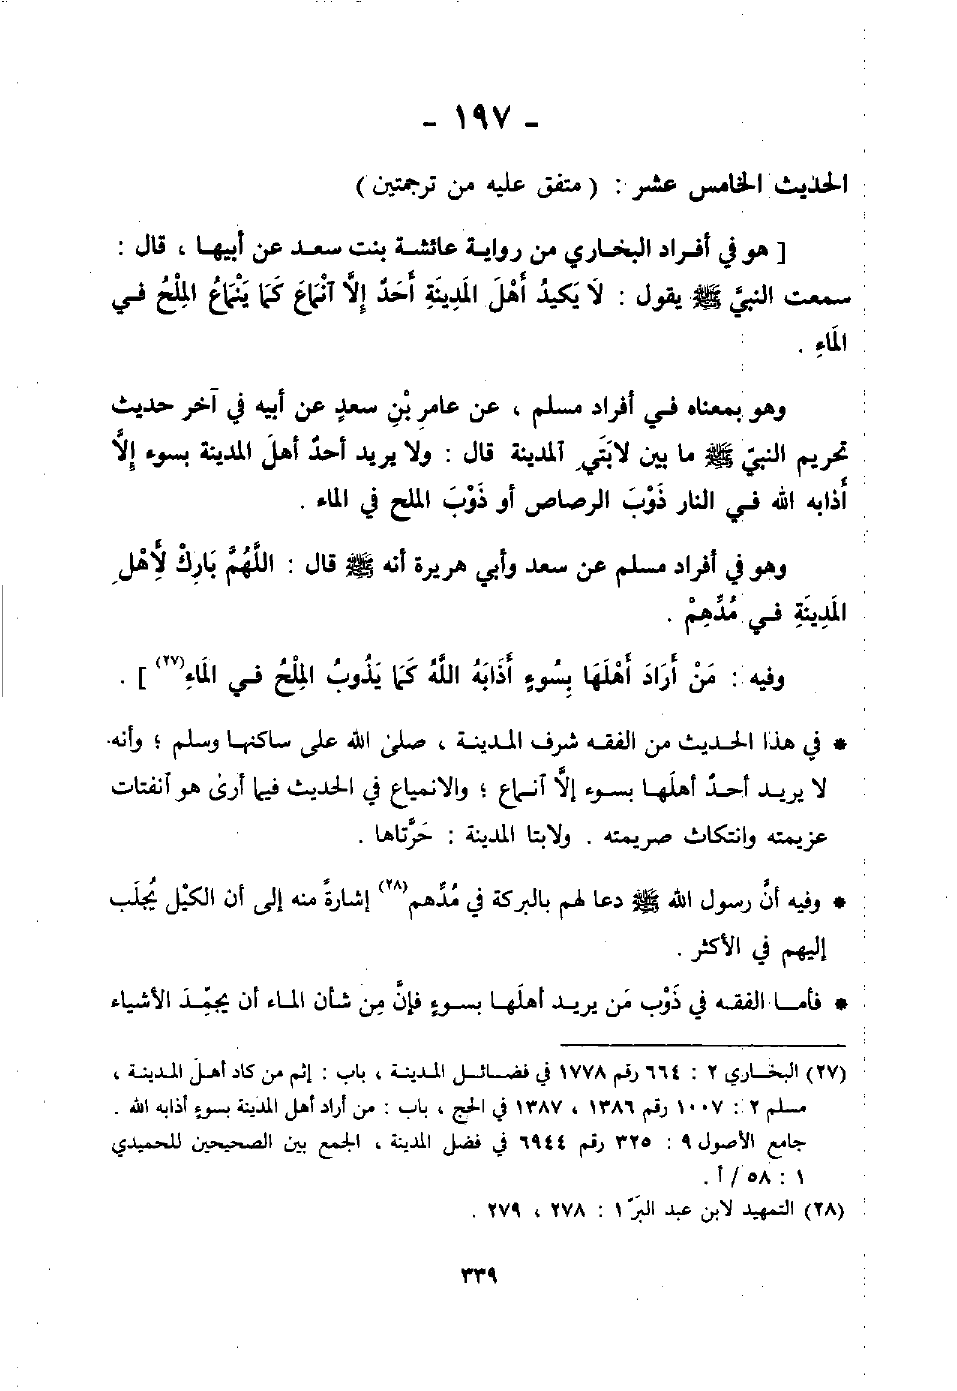 - ١٩٧ -
الحديث الخامس عشر : ( متفق عليه من ترجمتين )
[ هو في أفراد البخاري من رواية عائشة بنت سعد عن أبيها ، قال :
سمعت النبيَّ ﷺ يقول : لَا يَكيدُ أَهْلَ المَدِينَةِ أَحَدٌ إِلَّا آنْمَاعَ كَمَا يَنْمَاعُ المِلْحُ في
المَاءِ .
وهو بمعناه في أفراد مسلم ، عن عامرِ بْنِ سعدٍ عن أبيه في آخر حديث
تحريم النبيّ ﷺ ما بين لابَتَيِ آلمدينة قال : ولا يريد أحدٌ أهلَ المدينة بسوء إلَّا
أَذابه الله في النار ذَوْبَ الرصاص أو ذَوْبَ الملح في الماء .
وهو في أفراد مسلم عن سعد وأبي هريرة أنه ﷺ قال : اللَّهُمَّ بَارِكْ لِأَهْلِ
المَدِينَةِ في مُدِّهِمْ .
وفيه : مَنْ أَرَادَ أَهْلَهَا بِسُوءٍ أَذَابَهُ اللَّهُ كَمَا يَذُوبُ المِلْحُ في المَاءِ(٢٧) ] .
* في هذا الحديث من الفقه شرف المدينة ، صلىٰ الله على ساكنها وسلم ؛ وأنه
لا يريد أحدٌ أهلَها بسوء إلَّا آنماع ؛ والانمياع في الحديث فيما أرىٰ هو آنفتات
عزيمته وانتكاث صريمته . ولابتا المدينة : حَرَّتاها .
* وفيه أنَّ رسول الله ﷺ دعا لهم بالبركة في مُدِّهم(٢٨) إشارةً منه إلى أن الكيْل يُجلَب
إليهم في الأكثر .
* فأما الفقه في ذَوْب مَن يريد أهلَها بسوءٍ فإنَّ مِن شأن الماء أن يجمِّدَ الأشياء
(٢٧) البخاري ٢ : ٦٦٤ رقم ١٧٧٨ في فضائل المدينة ، باب : إثم من كاد أهلَ المدينة ،
مسلم ٢ : ١٠٠٧ رقم ١٣٨٦ ، ١٣٨٧ في الحج ، باب : من أراد أهل المدينة بسوءٍ أذابه الله .
جامع الأصول ٩ : ٣٢٥ رقم ٦٩٤٤ في فضل المدينة ، الجمع بين الصحيحين للحميدي
١ : ٥٨ / أ .
(٢٨) التمهيد لابن عبد البرّ ١ : ٢٧٨ ، ٢٧٩ .
٣٣٩